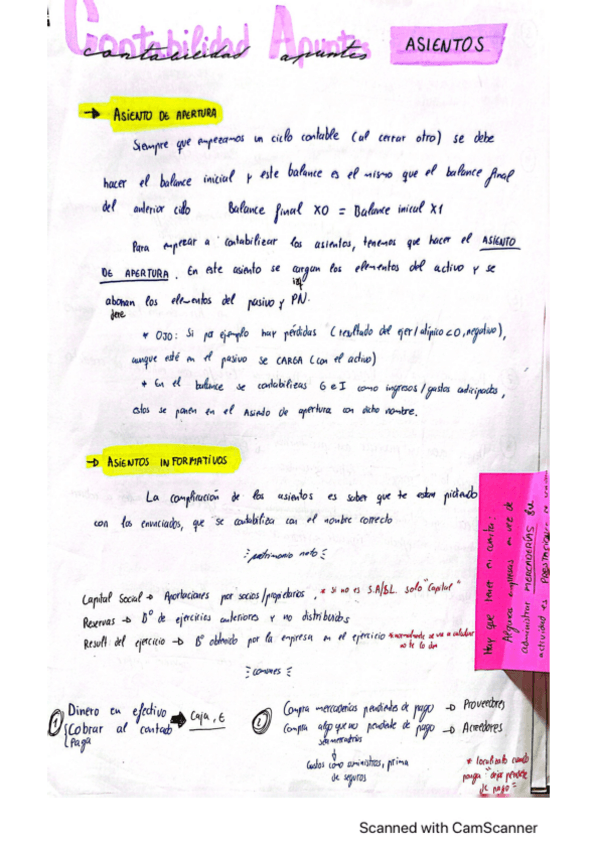 Contabilidad Apuntes
contabilidad apuntes
ASIENTOS
→ ASIENTO DE APERTURA
Siempre que empezamos un ciclo contable (al cerrar otro) se debe
hacer el balance inicial y este balance es el mismo que el balance final
del anterior ciclo Balance final X0 = Balance inicial X1
Para empezar a contabilizar los asientos, tenemos que hacer el ASIENTO
DE APERTURA. En este asiento se cargan los elementos del activo y se
izq
abonan los elementos del pasivo y PN.
dere
* OJO: Si por ejemplo hay pérdidas (resultado del ejer/atípico < 0, negativo),
aunque esté en el pasivo se CARGA (con el activo)
* En el balance se contabilizas G e I como ingresos/gastos anticipados,
estos se ponen en el Asiento de apertura con dicho nombre.
→ ASIENTOS INFORMATIVOS
La complicación de los asientos es saber que te estan pidiendo
con los enunciados, que se contabiliza con el nombre correcto
patrimonio neto
Capital Social → Aportaciones por socios/propietarios. * si no es S.A/S.L. solo "Capital"
Reservas → Bº de ejercicios anteriores y no distribuidos
Result del ejercicio → Bº obtenido por la empresa en el ejercicio * normalmente se va a calcular
no te lo dan
comunes
① Dinero en efectivo
Cobrar al contado → Caja, €
Paga
② Compra mercaderías pendientes de pago → Proveedores
Compra algo que no pendiente de pago → Acreedores
sea mercaderías
↓
como suministros, prima
de seguros
* cuando
ponga "deja pendiente
de pago"
Hay que tener en cuenta:
Algunas empresas en vez de
administrar MERCADERÍAS su
actividad es
Scanned with CamScanner